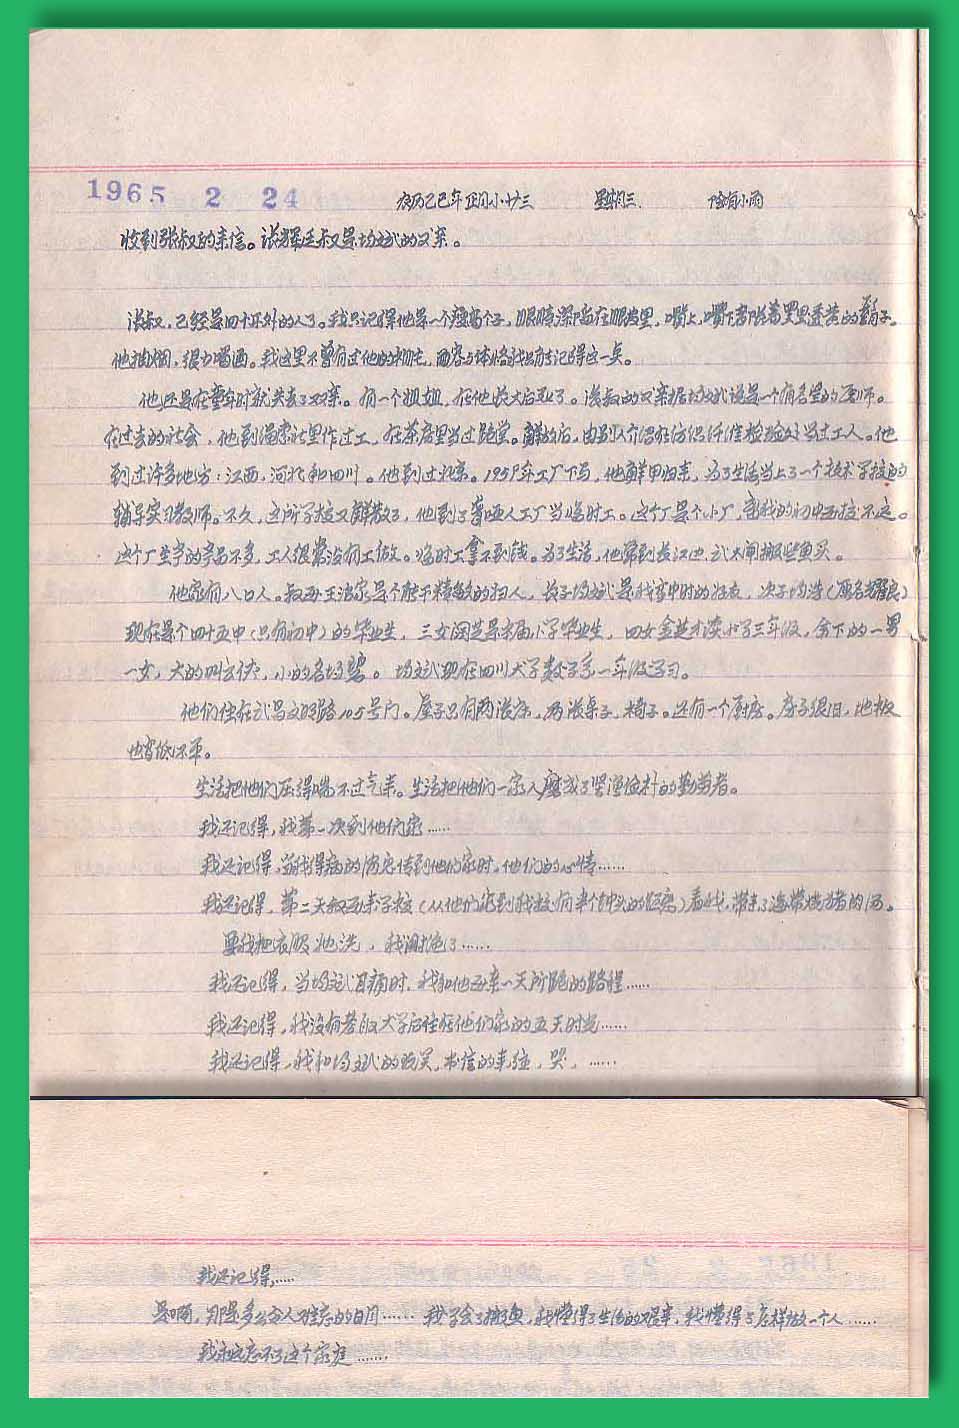 1965 2 24 农历乙巳年正月小廿三 星期三 阴有小雨
收到张叔的来信。张辉廷叔是均斌的父亲。
张叔,已经是四十开外的人了。我只记得他是一个瘦高个子,眼睛深陷在眼窝里,嘴上、嘴下都长着黑里透黄的胡子。
他抽烟,很少喝酒。我这里不曾有过他的相片,面容与体格我只能记得这一点。
他还是在童年时就失去了双亲。有一个姐姐,在他长大后死了。张叔的父亲据均斌说是一个有名望的厨师。
在过去的社会,他到过茶社里作过工,在茶店里当过跑堂。解放后,由别人介绍在纺织纤维检验处当过工人。他
到过许多地方:江西、河北和四川。他到过北京。1958年工厂下马,他解甲归来,为了生活当上了一个技术学校的
辅导实习教师。不久,这所学校又解散了,他到了聋哑人工厂当临时工。这个厂是个小厂,离我的初中母校不远。
这个厂生产的产品不多,工人很常没有工做。临时工拿不到钱。为了生活,他常到长江边、武大闸搬些鱼买。
他家有八口人。叔母王洁家是个能干精致的妇人,长子均斌是我高中时的好友,次子均浩(原名耀良)
现在是个四十五中(只有初中)的毕业生,三女闰芝是本届小学毕业生,四女金芝才读小学三年级,余下的一男
一女,大的叫云侠,小的名均碧。均斌现在四川大学数学系一年级学习。
他们住在武昌文明路105号门。屋子只有两张床,两张桌子,椅子。还有一个厨房。房子很旧,地板
也有些不平。
生活把他们压得喘不过气来。生活把他们一家人磨成了坚强俭朴的勤劳者。
我还记得,我第一次到他们家……
我还记得,当我得病的消息传到他们家时,他们的心情……
我还记得,第二天叔母来学校(从他们家到我校有半个钟头的距离)看我,带来了海带烧猪肉汤。
要我把衣服她洗,我谢绝了……
我还记得,当均斌目痛时,我和他母亲一天所跑的路程……
我还记得,我没有考取大学后住在他们家的五天时光……
我还记得,我和均斌的玩笑,书信的来往,哭,……
我还记得,……
是啊,那是多么令人难忘的日月…… 我学会了搬鱼,我懂得了生活的艰辛,我懂得了怎样做一个人……
我永远忘不了这个家庭……